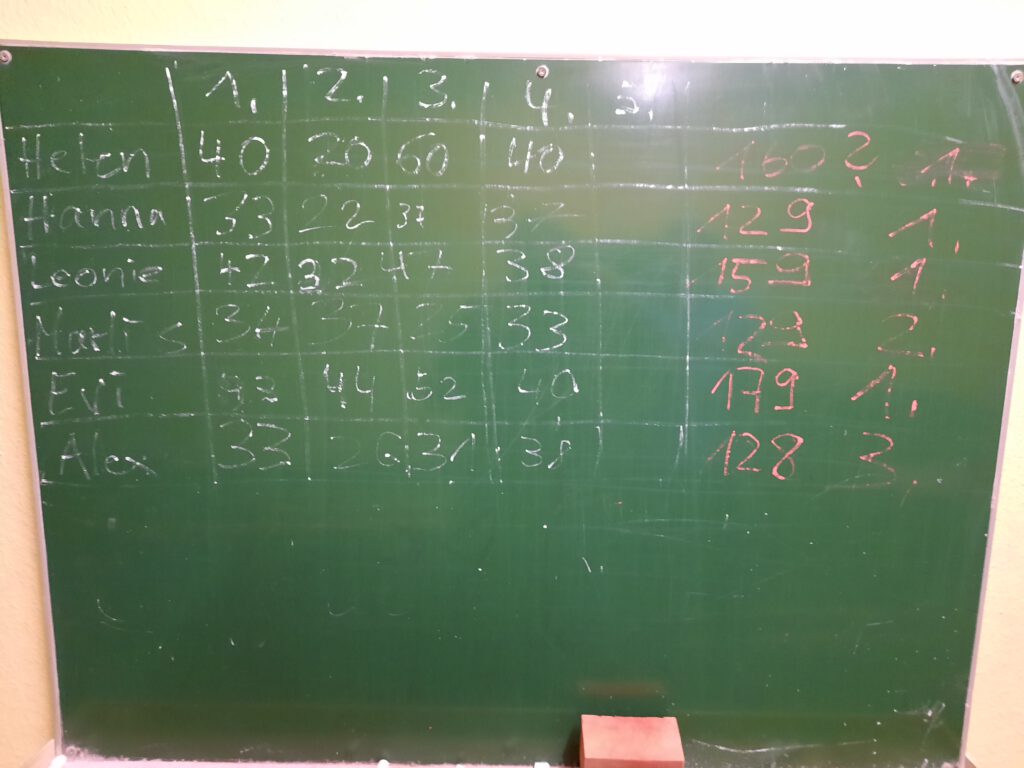 1. 2. 3. 4. 5.
Helen 40 20 60 40 160 ? 1.
Hanna 33 22 37 37 129 1.
Leonie 42 32 47 38 159 1.
Marlis 34 37 25 33 129 2.
Evi 43 44 52 40 179 1.
Alex 33 26 31 38 128 3.